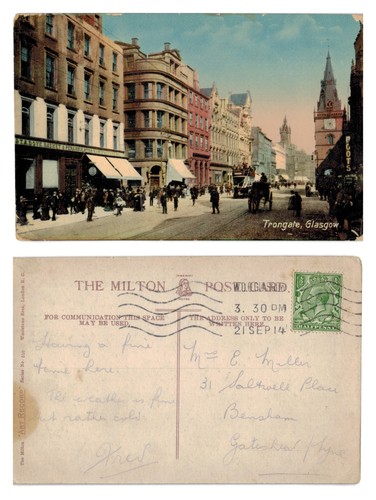 Trongate, Glasgow.
THE MILTON POST CARD
FOR COMMUNICATION THIS SPACE
MAY BE USED.
THE ADDRESS ONLY TO BE
WRITTEN HERE.
3. 30 PM
21 SEP 14
HALFPENNY
Having a fine
time here.
The weather is fine
but rather cold.
Fred
Mrs E. Miller
31 Saltwell Place
Bensham
Gateshead
The Milton "ART RECORD"